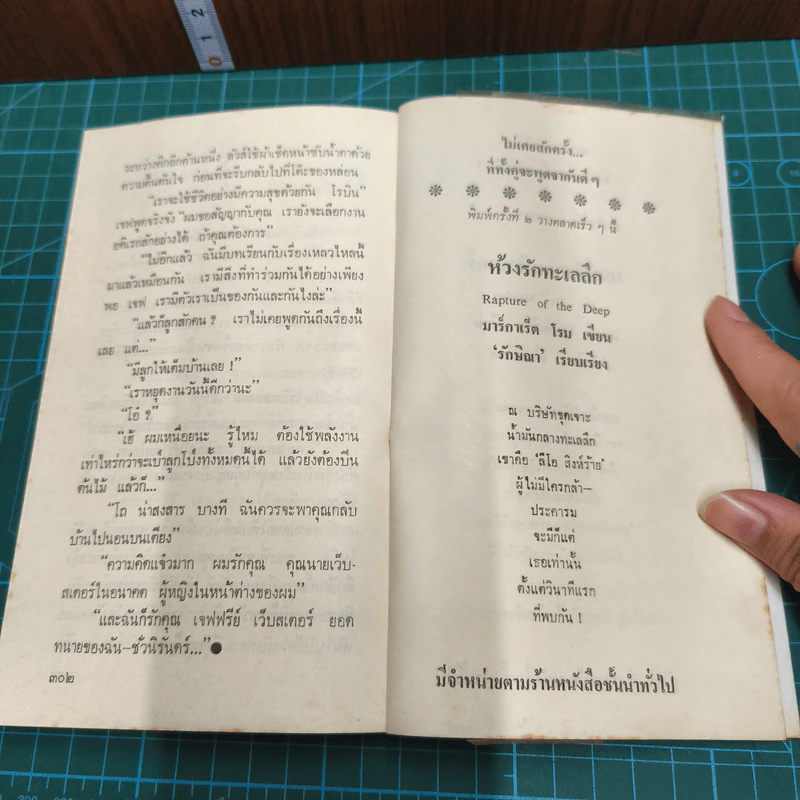 1
2
ระหว่างตึกอีกด้านหนึ่ง ลัวส์ใช้ผ้าเช็ดหน้าซับน้ำตาด้วย
ความตื้นตันใจ ก่อนที่จะรีบกลับไปที่โต๊ะของหล่อน
“เราจะใช้ชีวิตอย่างมีความสุขด้วยกัน โรบิน”
เจฟพูดจริงจัง “ผมขอสัญญากับคุณ เรายังจะเลือกงาน
อดิเรกสักอย่างได้ ถ้าคุณต้องการ”
“ไม่อีกแล้ว ฉันมีบทเรียนกับเรื่องเหลวไหลนี้
มาแล้วเหมือนกัน เรามีสิ่งที่ทำร่วมกันได้อย่างเพียง
พอ เจฟ เรามีตัวเราเป็นของกันและกันไงล่ะ”
“แล้วก็ลูกสักคน ? เราไม่เคยพูดกันถึงเรื่องนี้
เลย แต่...”
“มีลูกให้เต็มบ้านเลย !”
“เราหยุดงานวันนี้ดีกว่านะ”
“โอ๋ ?”
“เฮ้ ผมเหนื่อยนะ รู้ไหม ต้องใช้พลังงาน
เท่าไหร่กว่าจะเป่าลูกโป่งทั้งหมดนี้ได้ แล้วยังต้องปีน
ต้นไม้ แล้วก็...”
“โถ น่าสงสาร บางที ฉันควรจะพาคุณกลับ
บ้านไปนอนบนเตียง”
“ความคิดแจ๋วมาก ผมรักคุณ คุณนายเว็บ-
สเตอร์ในอนาคต ผู้หญิงในหน้าต่างของผม”
“และฉันก็รักคุณ เจฟฟรีย์ เว็บสเตอร์ ยอด
ทนายของฉัน—ชั่วนิรันดร์...”●
๓๐๒
ไม่เคยสักครั้ง...
ที่ทั้งคู่จะพูดจากันดี ๆ
พิมพ์ครั้งที่ ๒ วางตลาดเร็ว ๆ นี้
ห้วงรักทะเลลึก
Rapture of the Deep
มาร์กาเร็ต โรม เขียน
‘รักษิณา’ เรียบเรียง
ณ บริษัทขุดเจาะ
น้ำมันกลางทะเลลึก
เขาคือ ‘ลีโอ สิงห์ร้าย’
ผู้ไม่มีใครกล้า—
ประคารม
จะมีก็แต่
เธอเท่านั้น
ตั้งแต่วินาทีแรก
ที่พบกัน !
มีจำหน่ายตามร้านหนังสือชั้นนำทั่วไป